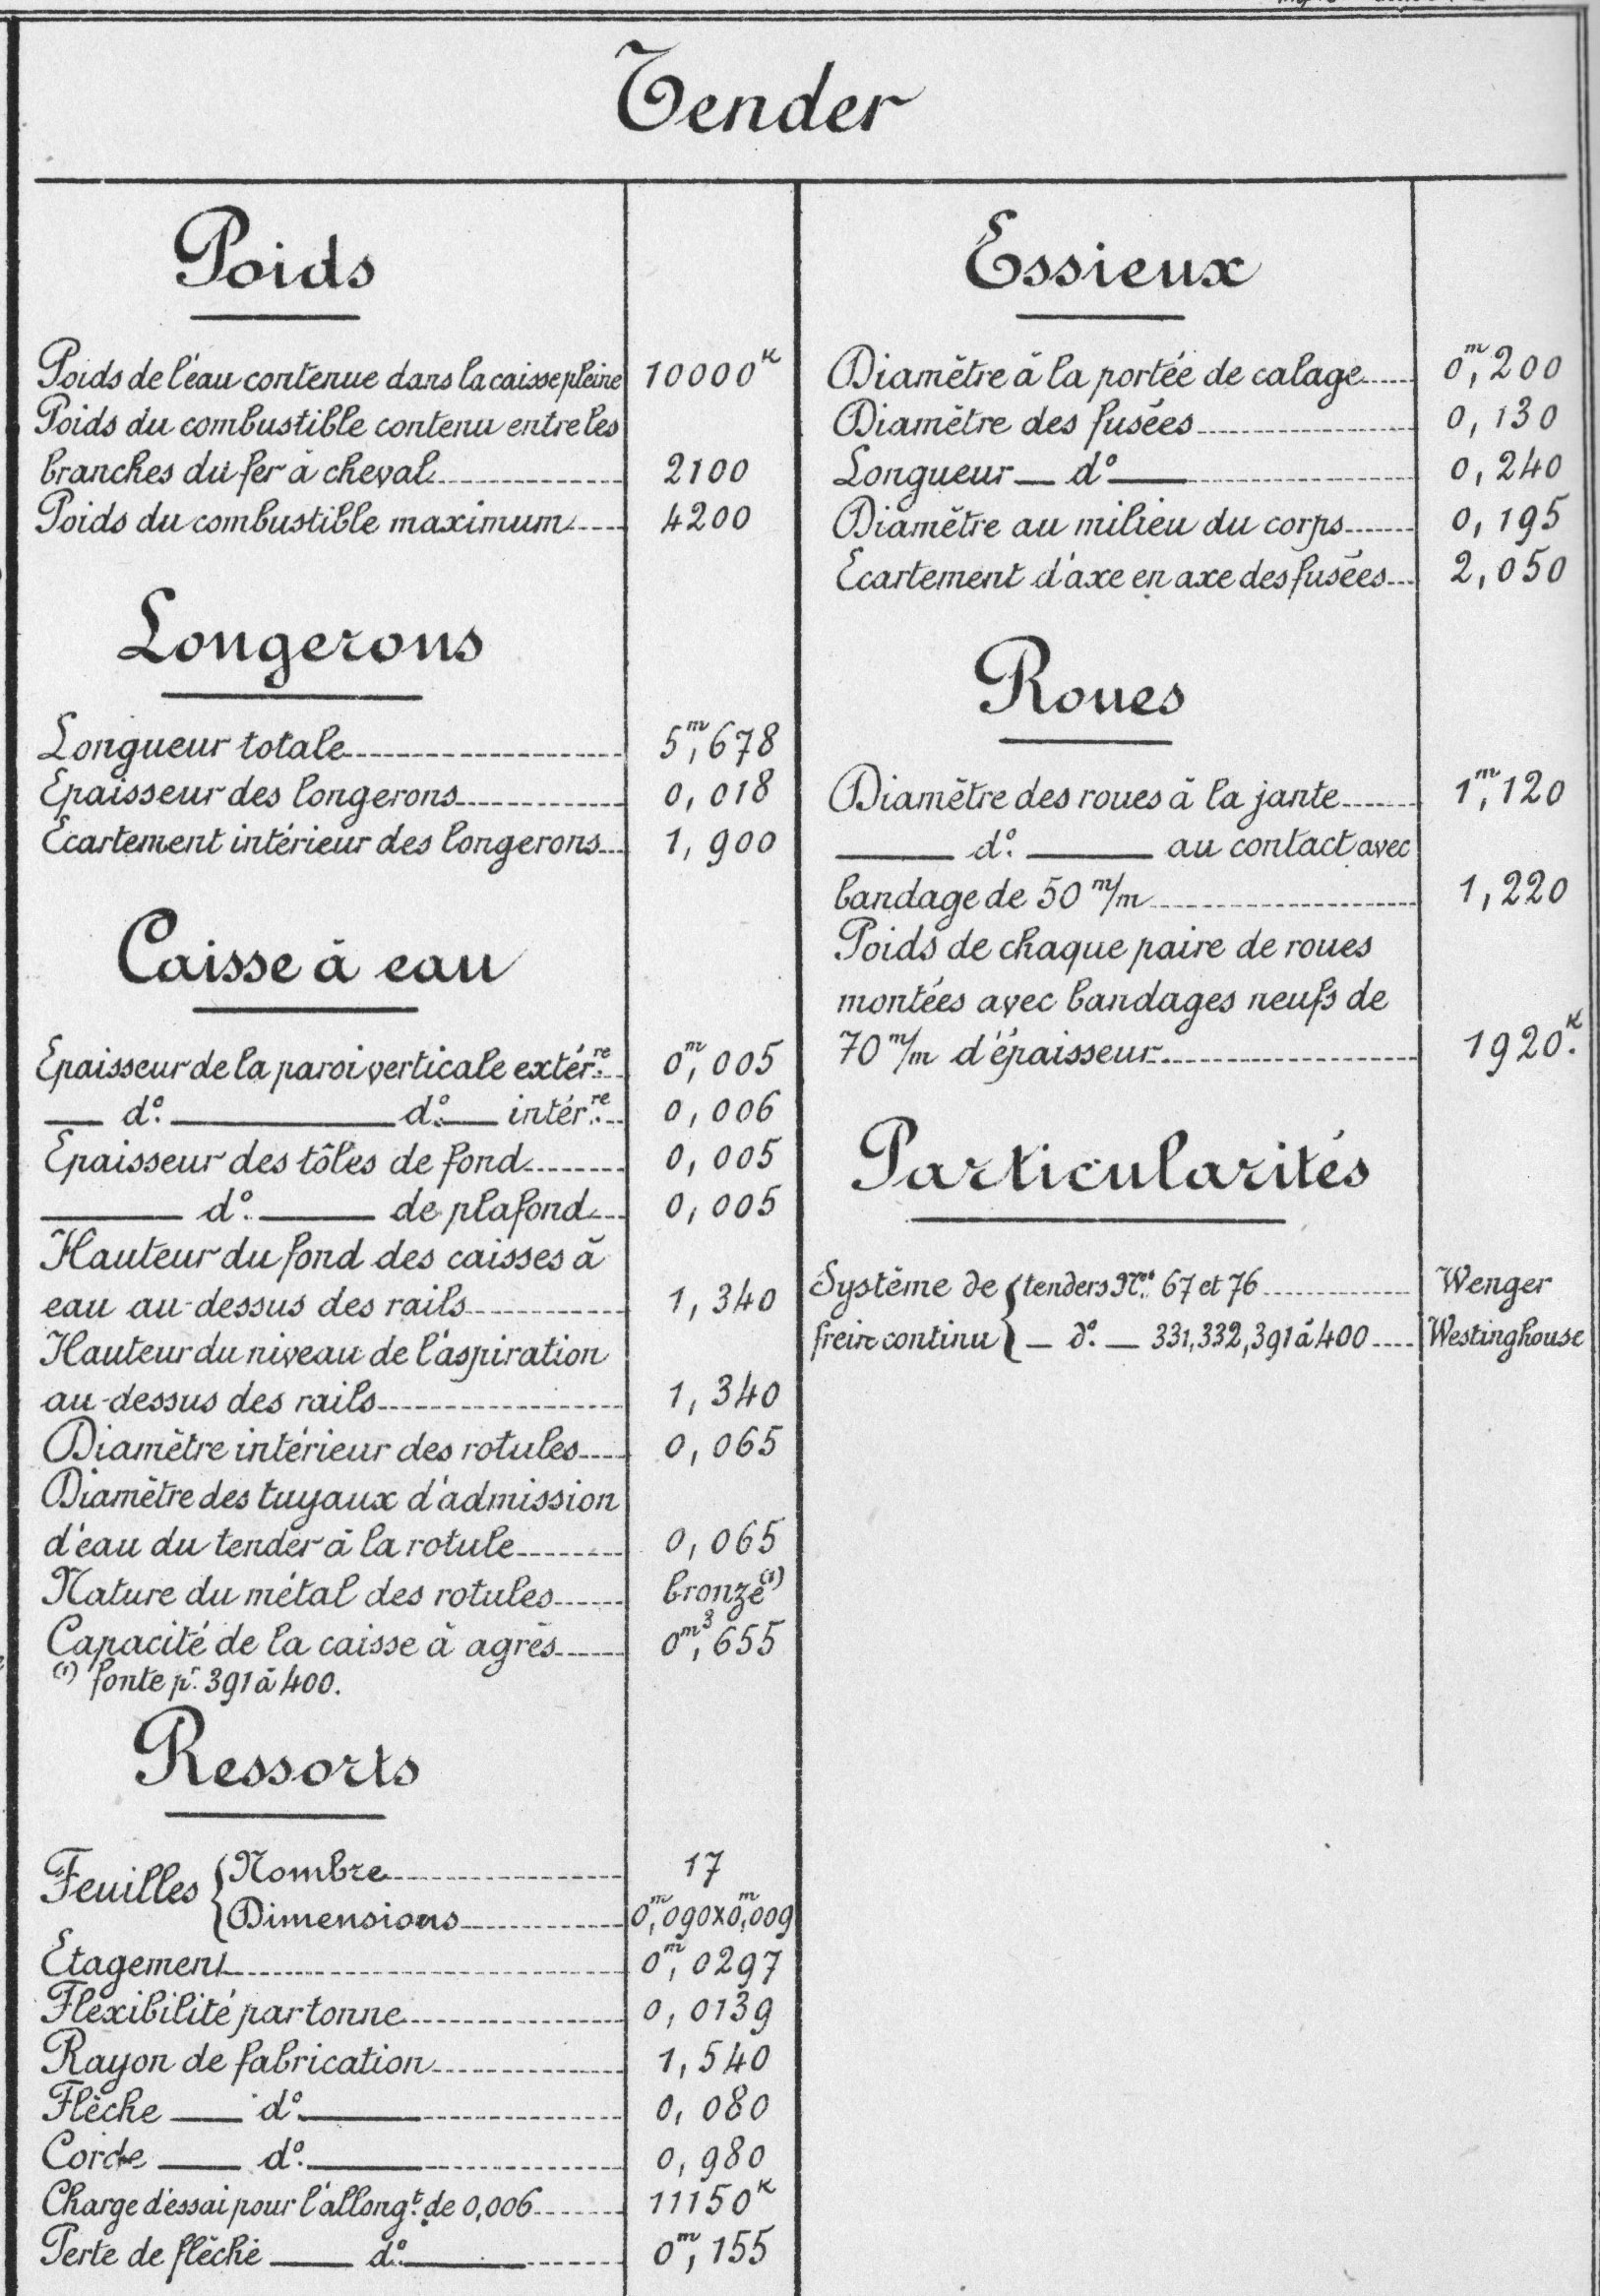 Tender
Poids
Poids de l'eau contenue dans la caisse pleine 10000ᴷ
Poids du combustible contenu entre les
branches du fer à cheval 2100
Poids du combustible maximum 4200
Longerons
Longueur totale 5ᵐ,678
Epaisseur des longerons 0,018
Ecartement intérieur des longerons 1,900
Caisse à eau
Epaisseur de la paroi verticale extér.ʳᵉ 0ᵐ,005
— d°. — d°. — intér.ʳᵉ 0,006
Epaisseur des tôles de fond 0,005
— d°. — de plafond 0,005
Hauteur du fond des caisses à
eau au-dessus des rails 1,340
Hauteur du niveau de l'aspiration
au-dessus des rails 1,340
Diamètre intérieur des rotules 0,065
Diamètre des tuyaux d'admission
d'eau du tender à la rotule 0,065
Nature du métal des rotules bronze⁽¹⁾
Capacité de la caisse à agrès 0ᵐ³,655
⁽¹⁾ fonte pʳ. 391 à 400.
Ressorts
Feuilles { Nombre 17
Dimensions 0ᵐ,090x0ᵐ,009
Etagement 0ᵐ,0297
Flexibilité par tonne 0,0139
Rayon de fabrication 1,540
Flèche — d°. — 0,080
Corde — d°. — 0,980
Charge d'essai pour l'allongᵗ. de 0,006 11150ᴷ
Perte de flèche — d°. — 0ᵐ,155
Essieux
Diamètre à la portée de calage 0ᵐ,200
Diamètre des fusées 0,130
Longueur — d° — 0,240
Diamètre au milieu du corps 0,195
Ecartement d'axe en axe des fusées 2,050
Roues
Diamètre des roues à la jante 1ᵐ,120
— d°. — au contact avec
bandage de 50 ᵐ/m 1,220
Poids de chaque paire de roues
montées avec bandages neufs de
70 ᵐ/m d'épaisseur 1920.ᴷ
Particularités
Système de { tenders Nᵒˢ. 67 et 76 Wenger
frein continu — d°. — 331,332,391 à 400 Westinghouse